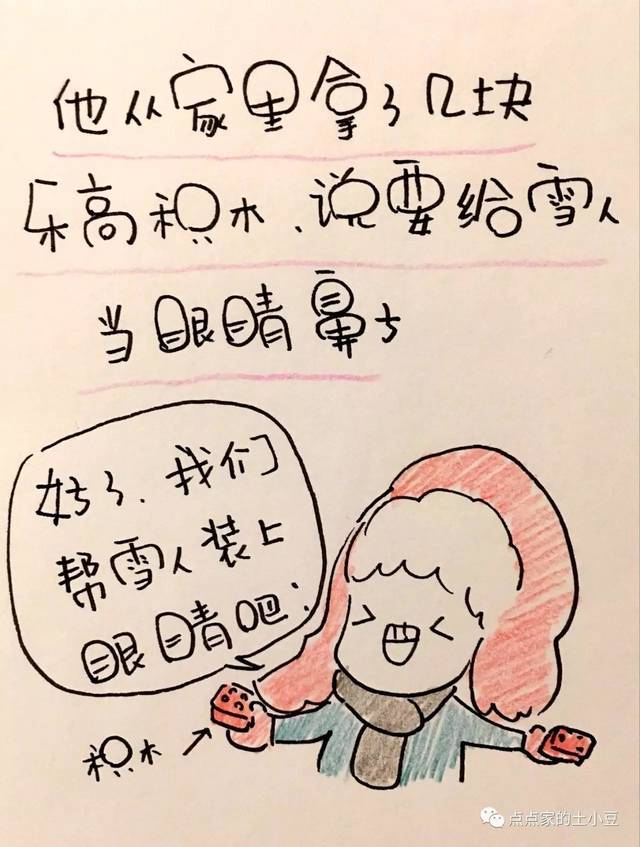 他从家里拿了几块
乐高积木、说要给雪人
当眼睛鼻子
好了、我们
帮雪人装上
眼睛吧：
积木
点点家的土小豆